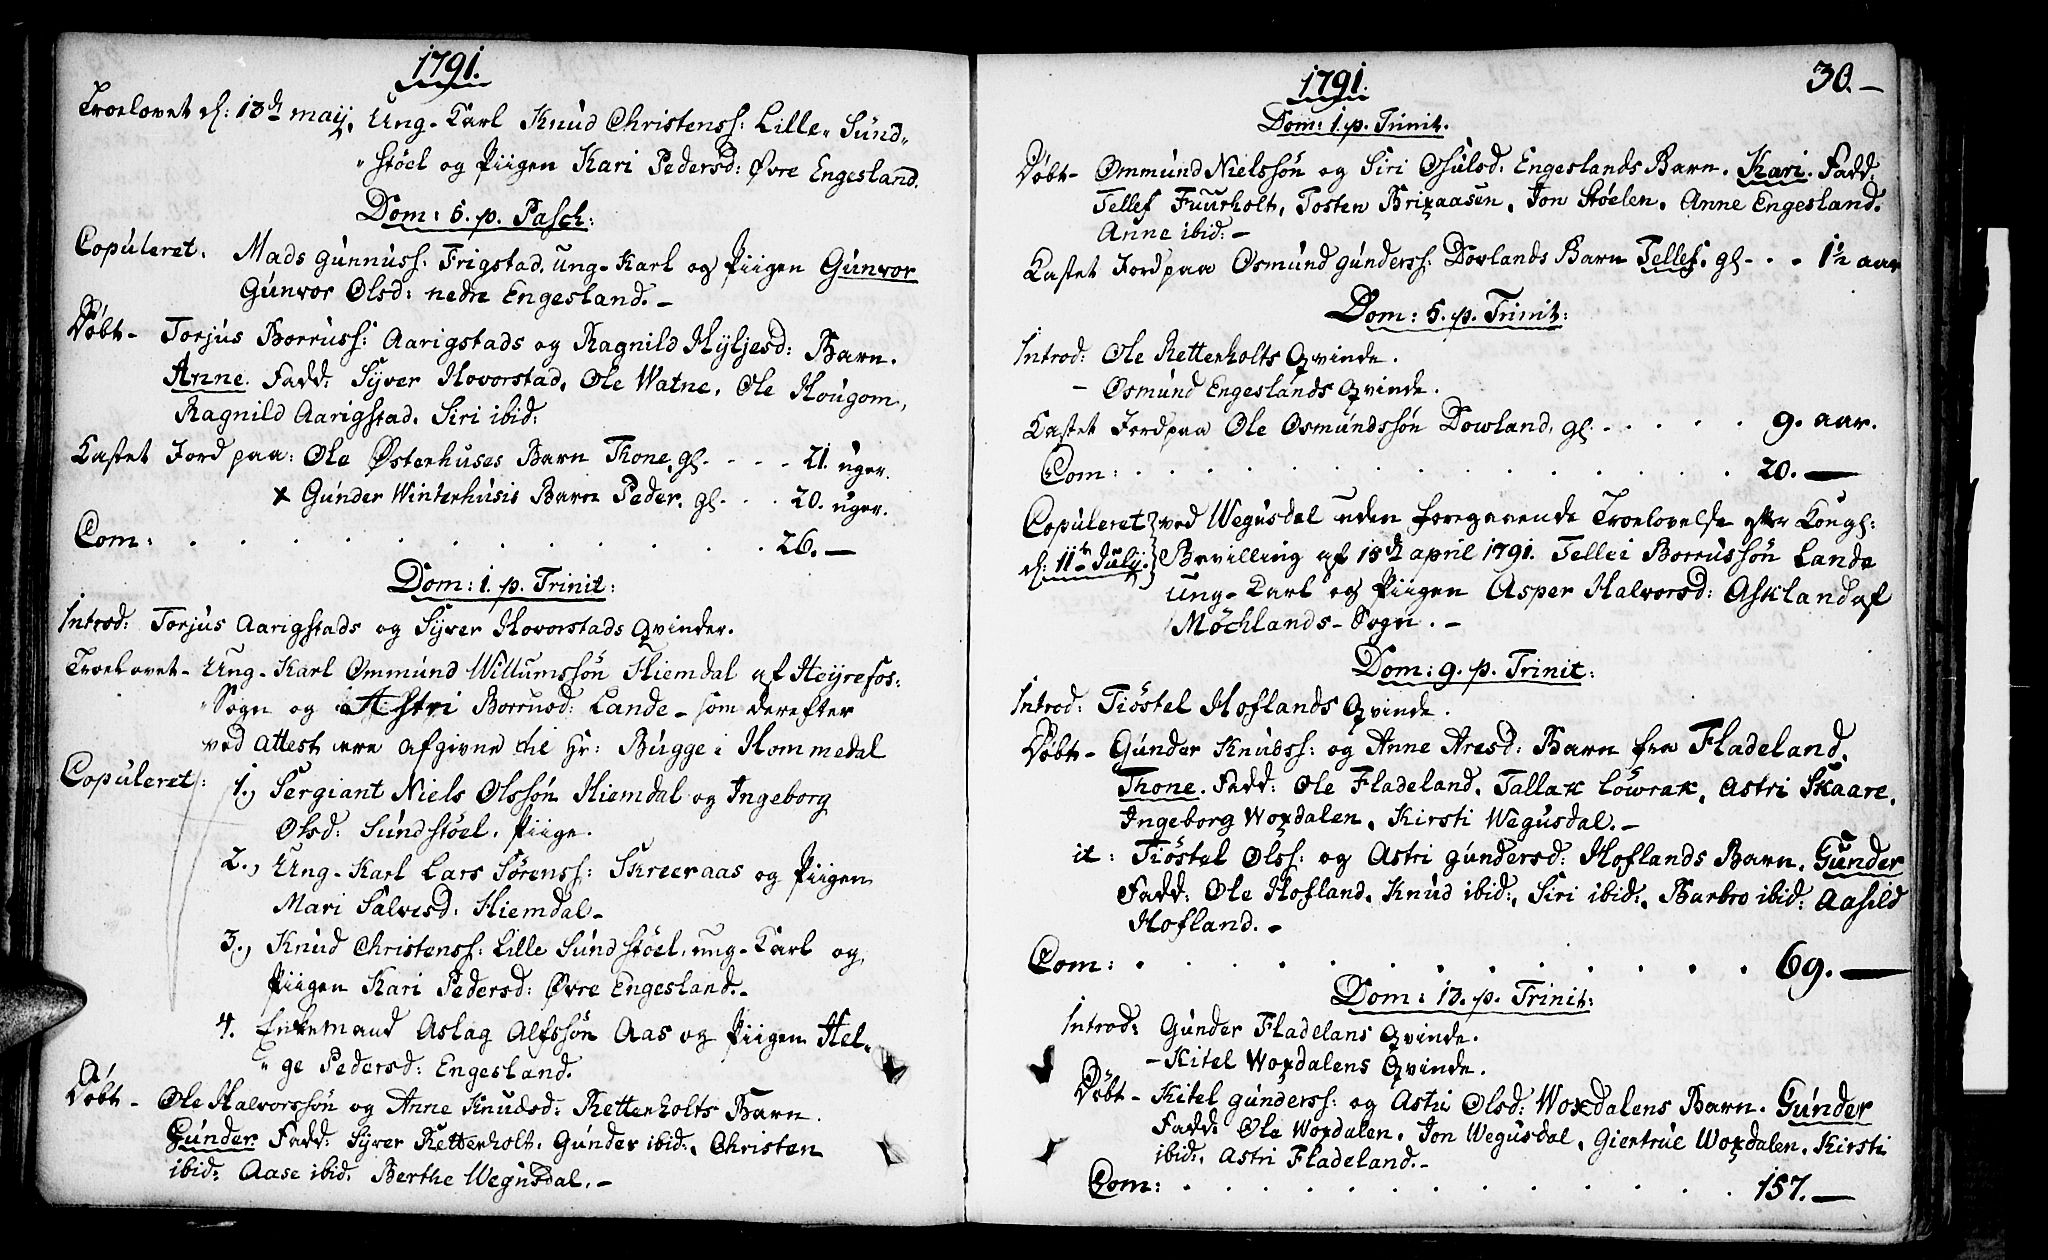 1791.
Troelovet d: 13de maij, Ung-Karl Knud Christenss: Lille-Sund-
støel og Piigen Kari Pedersd: Øvre Engesland.
Dom: 5. p. Pasch:
Copuleret. Mads Gunnuss: Frigstad, ung-Karl og Piigen Gunvor
Gunvor Olsd: nedre Engesland. -
Døbt - Torjus Borruss: Aarigstads og Ragnild Hyljesd: Barn.
Anne. Fadd: Syver Hovorstad, Ole Watne, Ole Hougom,
Ragnild Aarigstad, Siri ibid:
Kastet Jord paa: Ole Østerhuses Barn Thone, gl. - - - 21. uger.
x Gunder Winterhusis Barn Peder. gl. . . . 20. uger.
Com: . . . . . . . . . . . . 26. -
Dom: 1. p. Trinit:
Introd: Torjus Aarigstads og Syver Hovorstads Qvinder.
Troelovet - Ung-Karl Ommund Willumssøn Hiemdal af Heyrefos-
Sogn og Astri Borrusd: Lande - som derefter
ved Attest ere afgivne til Hr: Bugge i Hommedal
Copuleret: 1., Sergiant Niels Olssøn Hiemdal og Ingeborg
Olsd: Sundstøel, Piige.
2., Ung-Karl Lars Sørenss: Skreeraas og Piigen
Mari Salvesd: Hiemdal -
3., Knud Christenss: Lille Sundstøel, ung-Karl og
Piigen Kari Pedersd: Øvre Engesland. -
4. Enkemand Aslag Alfssøn Aas og Piigen Hel-
ge Pedersd: Engesland.
Døbt - Ole Halvorssøn og Anne Knudsd: Retterholts Barn.
Gunder. Fadd: Syver Retterholt, Gunder ibid:, Christen
ibid: Aase ibid. Berthe Wegusdal. -
1791. 30. -
Dom: 1. p. Trinit.
Døbt - Ommund Nielssøn og Siri Osulsd. Engeslands Barn. Kari. Fadd:
Tellef Fuurholt, Tosten Brixaasen, Jon Støelen, Anne Engesland.
Anne ibid: -
Kastet Jord paa Osmund Gunderss: Dovlands Barn Tellef. gl - . . 1½ aar
Dom: 5. p. Trinit:
Introd: Ole Retterholts Qvinde.
- Osmund Engeslands Qvinde.
Kastet Jord paa Ole Osmundssøn Dowland, gl. . . . . . 9. aar.
Com: . . . . . . . . . . . . 20. -
Copuleret ved Wegusdal uden foregaaende Troelovelse efter Kongl:
d: 11te Julij. Bevilling af 15de april 1791. Tellei Borrussøn Lande
ung-Karl og Piigen Asper Halvorsd: Askland af
Møchlands-Sogn. -
Dom: 9. p. Trinit:
Introd: Tiøstel Hoflands Qvinde.
Døbt - Gunder Knudss: og Anne Aresd: Barn fra Fladeland.
Thone. Fadd: Ole Fladeland, Tallak Løwrak, Astri Skaare,
Ingeborg Woxdalen, Kirsti Wegusdal. -
it: Tiøstel Olss: og Astri Gundersd: Hoflands Barn. Gunder
Fadd: Ole Hofland, Knud ibid:, Siri ibid:, Barbro ibid: Aasild
Hofland. -
Com: . . . . . . . . . . . . 69. -
Dom: 13. p. Trinit:
Introd: Gunder Fladelans Qvinde.
- Kitel Woxdalens Qvinde.
Døbt - Kitel Gunderss: og Astri Olsd: Woxdalens Barn. Gunder
Fadd: Ole Woxdalen, Jon Wegusdal, Giertrue Woxdalen, Kirsti
ibid:, Astri Fladeland. -
Com: . . . . . . . . . . . . 157. -